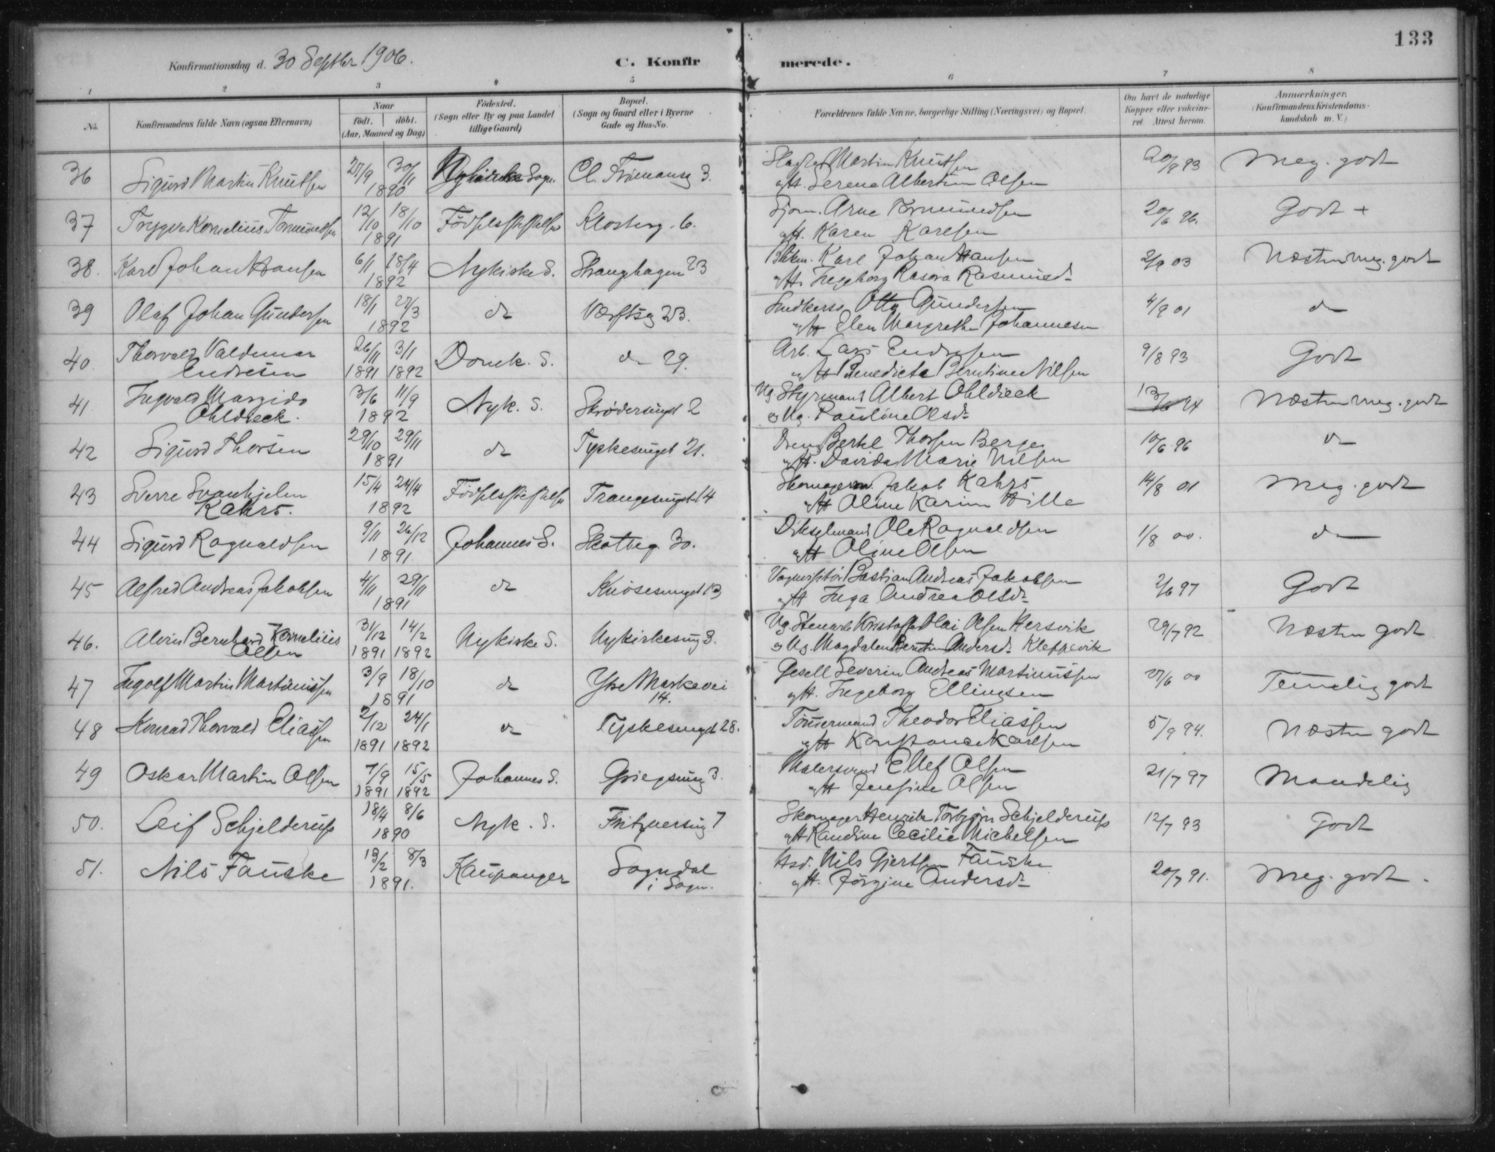 133
Konfirmationsdag d. 30 Septbr 1906.
C. Konfirmerede.
1 2 3 4 5 6 7 8
No. Konfirmandens fulde Navn (ogsaa Efternavn) Naar født. døbt. (Aar, Maaned og Dag) Fødested. (Sogn eller By og paa Landet tillige Gaard) Bopæl. (Sogn og Gaard eller i Byerne Gade og Hus-No. Forældrenes fulde Navne, borgerlige Stilling (Næringsvei) og Bopæl. Om havt de naturlige Kopper eller vakcineret. Attest herom. Anmærkninger. (Konfirmandens Kristendomskundskab m. V.)
36 Sigurd Martin Knutsen 27/9 30/11 1890 Nykirkes Sogn. Cl. 3. Martin Knutsen 20/9 93 Meg. godt
og H. Serene Albertine Olsen
37 Trygve Kornelius Tormundsen 12/10 18/10 1891 Fødselsstiftelsen Klosterg. 6. Arne Tormundsen 20/6 96. Godt +
og H. Karen Karlsen
38. Karl Johan Hansen 6/1 18/4 1892 Nykirke S. Stranghagen 23 Karl Johan Hansen 2/9 03 Næsten meg. godt
og H. Ingeborg Rasmusd.
39 Olaf Johan Gundersen 18/1 27/3 1892 do Værftsg 23. Snedkersv. Otto Gundersen 4/9 01 do
og H. Elen Margrethe Johannesen
40. Thorvald Valdemar Endresen 26/11 3/1 1891 1892 Domk. S. do 29. Arb. Lars Endresen 9/8 93 Godt
og H. Benedicte Berntine Nilsen
41. Ingvald Margido Ohldieck. 3/6 11/9 1892 Nyk. S. Skrødersmget 2 Ug Styrmand Albert Ohldieck Næsten meg. godt
og Ug. Pauline Olsd.
42 Sigurd Thorsen 29/10 29/11 1891 do Tyskesmuget 21. Bertel Thorsen Berge 10/6 96 do
og H. Davida Marie Nilsen
43 Sverre Svanhjelm Kahrs. 15/4 24/4 1892 Fødselsstiftelsen Trangesmuget 14 Skomagersv. Jakob Kahrs 14/8 01 Meg. godt
og H Oline Karine Hille
44 Sigurd Ragnvaldsen 9/11 26/12 1891 Johannes S. Skotteg 30. Ole Ragnvaldsen 1/8 00. do
og H Oline Olsen
45 Alfred Andreas Jakobsen 4/11 29/11 1891 do Knøsesmuget 13 Bastian Andreas Jakobsen 2/6 97 Godt
og H Inga Andrea Olsd.
46. Alvin Bernhard Kornelius Olsen 31/12 14/2 1891 1892 Nykirke S. Nykirkesmg 3. Ug Stenarb Kristoffer Olai Olsen Hersvik 29/7 92 Næsten godt
og Ug. Magdalene Berntine Andersd. Kleppevik
47 Ingolf Martin Martinussen 3/9 18/10 1891 do Ytre Markevei 14. Gesell Severin Andreas Martinussen 27/6 00 Temmelig godt
og H. Ingeborg Ellingsen
48 Konrad Thorvald Eliassen 2/12 24/1 1891 1892 do Tyskesmuget 28. Tømmermand Theodor Eliassen 5/9 94. Næsten godt
og H Konstance Karlsen
49 Oskar Martin Olsen 7/9 15/5 1891 1892 Johannes S. Griegsmug 3. Malersvend Ellef Olsen 21/7 97 Maadelig
og H Josefine Olsen
50. Leif Schjelderup 18/4 8/6 1890 Nyk. S. Fritznersmg 7 Skomager Henrik Torbjørn Schjelderup 12/7 93 Godt
og H Randine Cecilie Michelsen
51. Nils Fauske 13/2 8/3 1891. Kaupanger Sogndal i Sogn. Nils Gjertsen Fauske 20/7 91. Meg. godt.
og H. Jørgine Andersd.